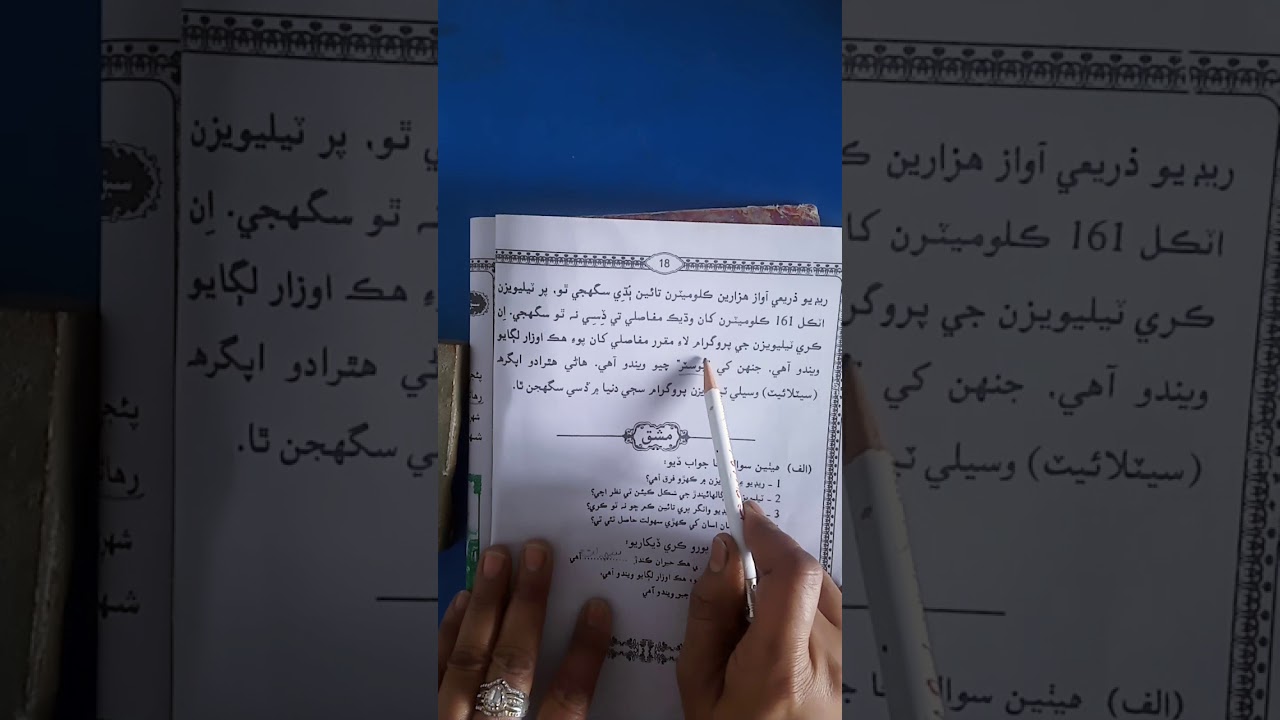 18
ريڊيو ذريعي آواز هزارين ڪلوميٽرن تائين ٻُڌي سگهجي ٿو، پر ٽيليويزن
اٽڪل 161 ڪلوميٽرن کان وڌيڪ مفاصلي تي ڏِسِي نہ ٿو سگهجي. اِن
ڪري ٽيليويزن جي پروگرام لاءِ مقرر مفاصلي کان پوءِ هڪ اوزار لڳايو
ويندو آهي، جنهن کي "بوسٽر" چيو ويندو آهي. هاڻي هٿرادو اپگرهه
(سيٽلائيٽ) وسيلي پروگرام سڄي دنيا ۾ ڏسي سگهجن ٿا.
مشق
(الف) هيٺين جواب ڏيو:
1 - ريڊيو ۾ ڪهڙو فرق آهي؟
2 - جي شڪل ڪيئن ٿي نظر اچي؟
3 - وانگر پري تائين ڪم ڇو نہ ٿو ڪري؟
اسان کي ڪهڙي سهولت حاصل ٿئي ٿي؟
پورو ڪري ڏيکاريو:
هڪ حيران ڪندڙ آهي
هڪ اوزار لڳايو ويندو آهي.
چيو ويندو آهي